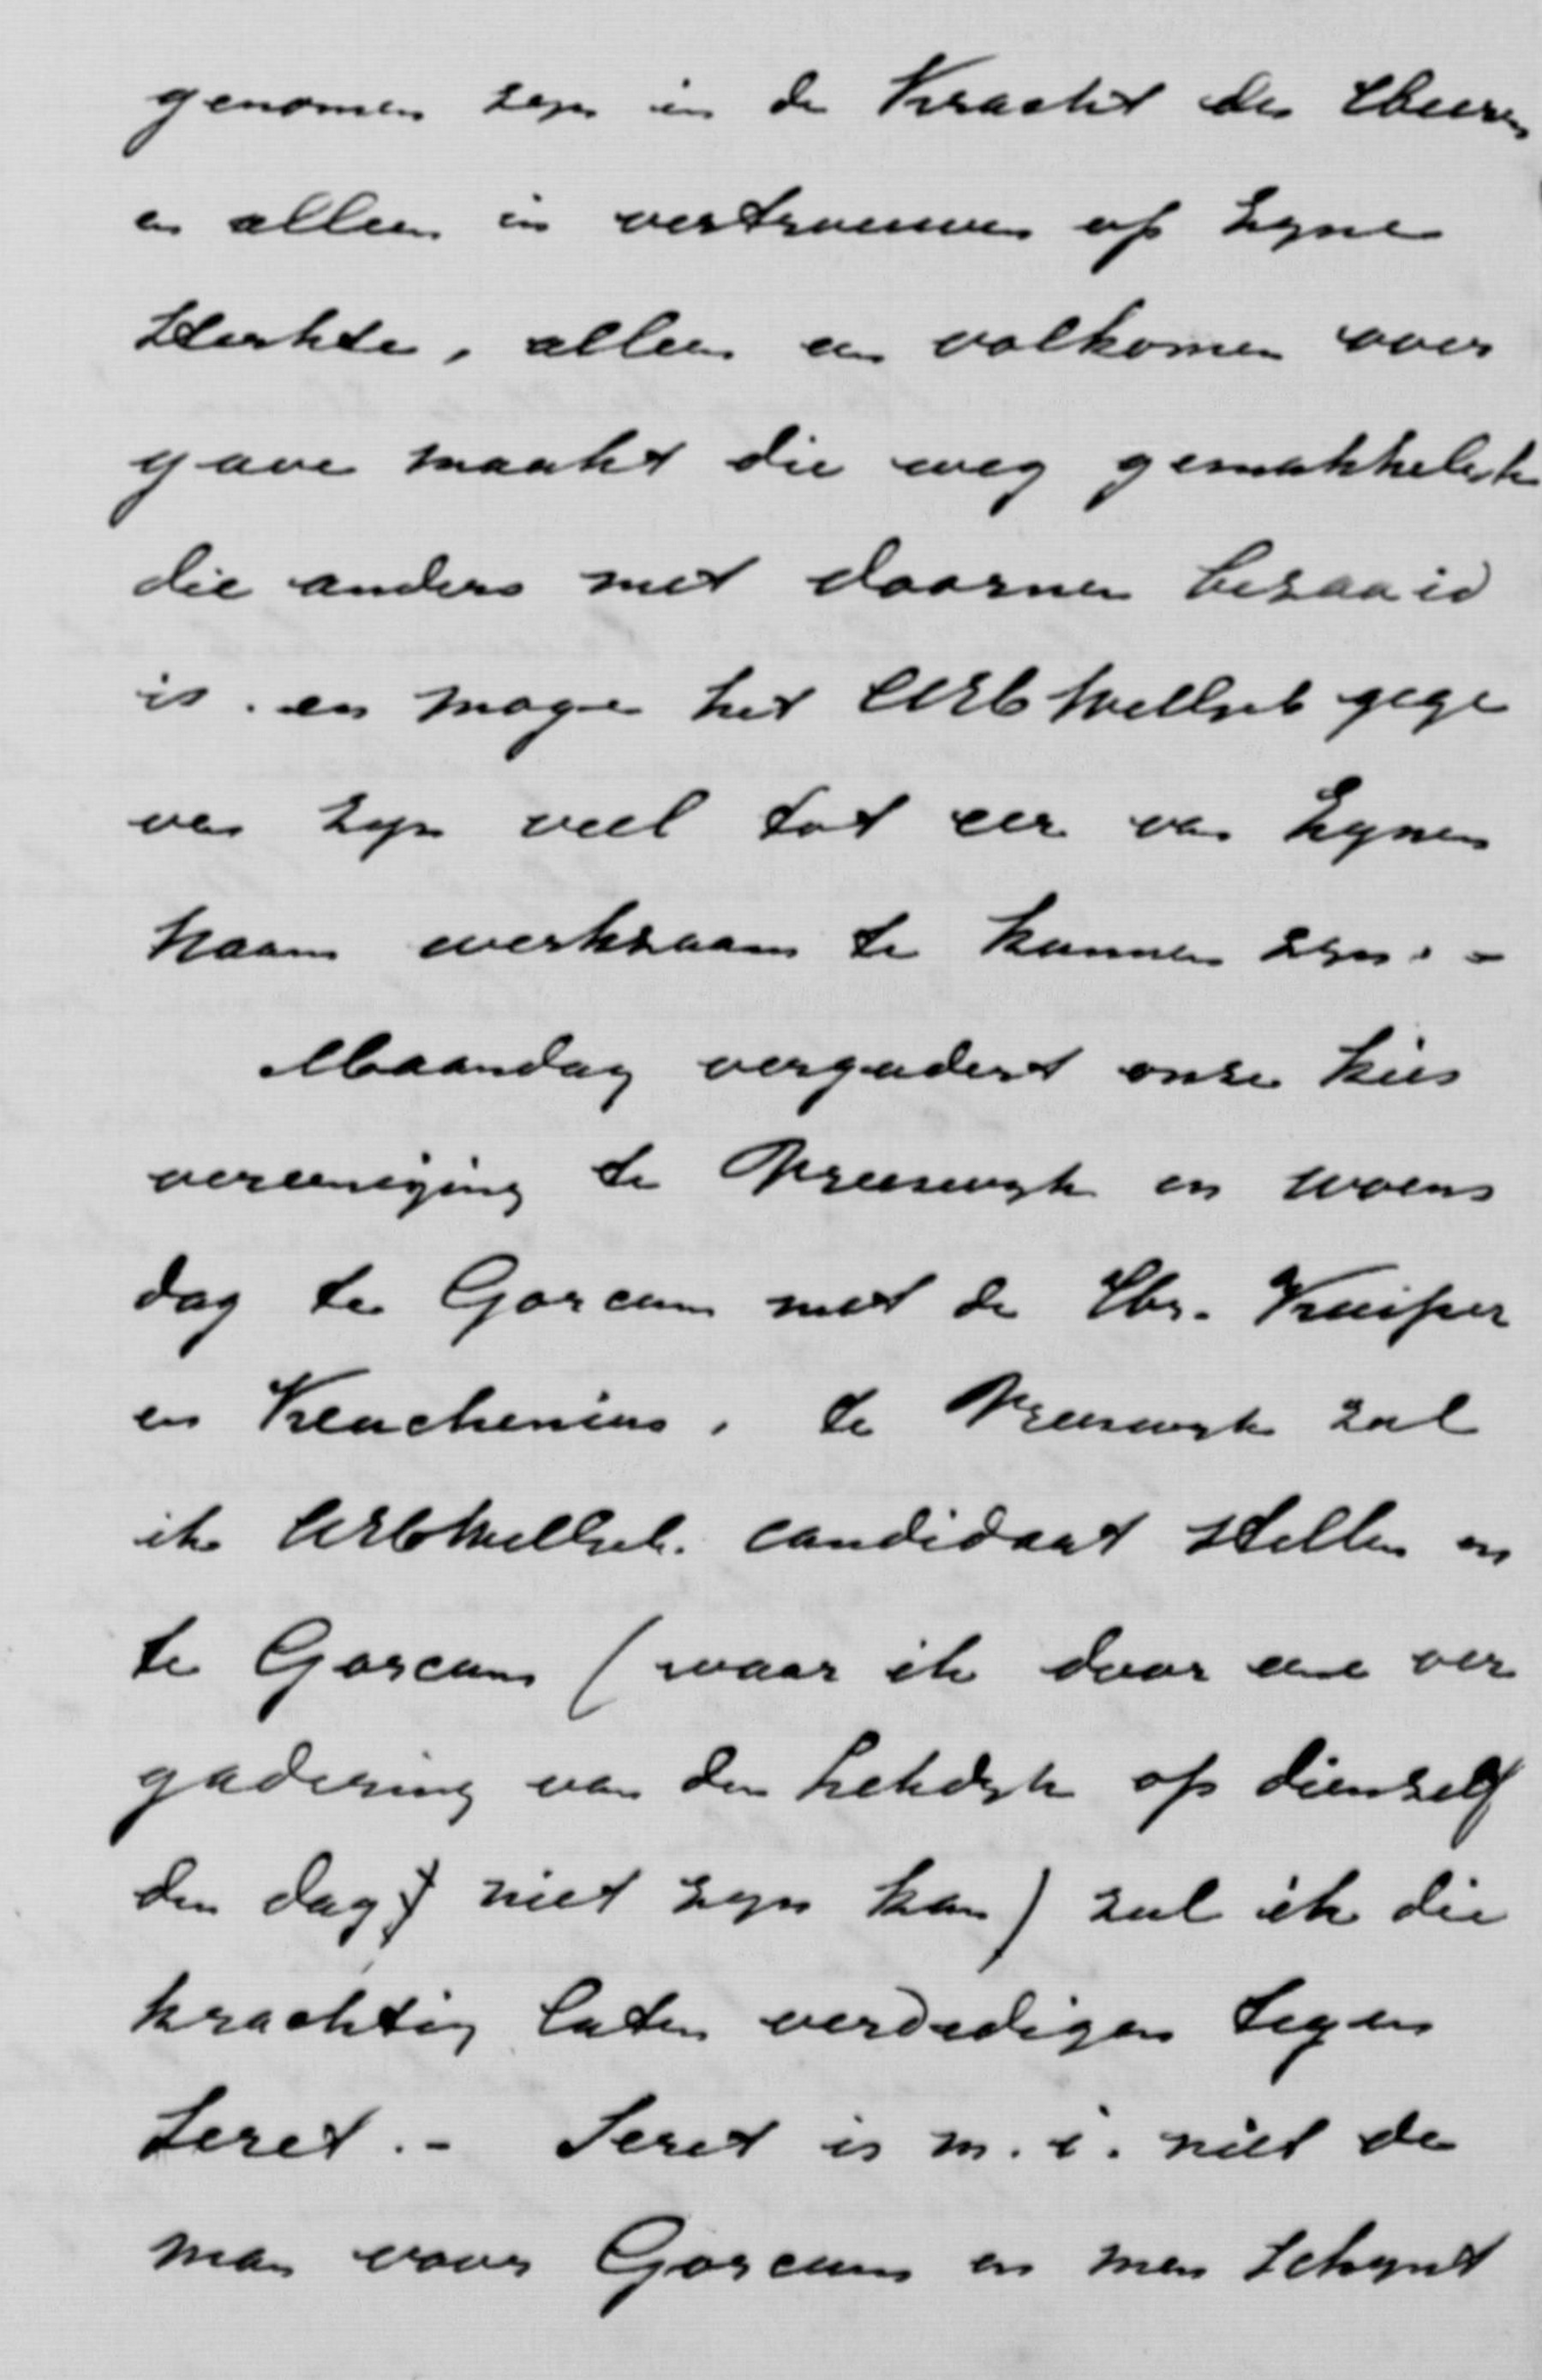 genomen zyn in de Kracht des Heeren
en alleen in vertrouwen op Zyne
sterkte, alleen een volkomen over
gave maakt die weg gemakkelyk
die anders met doornen bezaaid
is. en moge het UHEdWelGeb gege
ven zyn veel tot eer van Zynen
Naam werkzaam te kunnen zyn. -
Maandag vergadert onze kies
vereeniging te Vreeswyk en woens
dag te Gorcum met de Hr. Kuiper
en Keuchenius, te Vreeswyk zal
ik candidaat stellen en
te Gorcum (waar ik door eene ver
gadering van den Lekdyk op dienzelf
den dag niet zyn kan) zal ik die
krachtig laten verdedigen tegen
Seret. - Seret is m. i. niet de
man voor Gorcum en men schynt